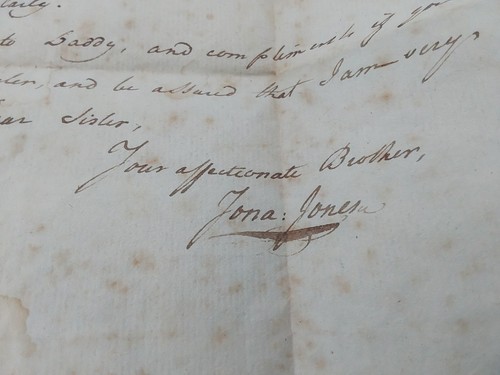 to Daddy, and compliments if you
and be assured that I am very,
Sister,
Your affectionate Brother,
Jona: Jones